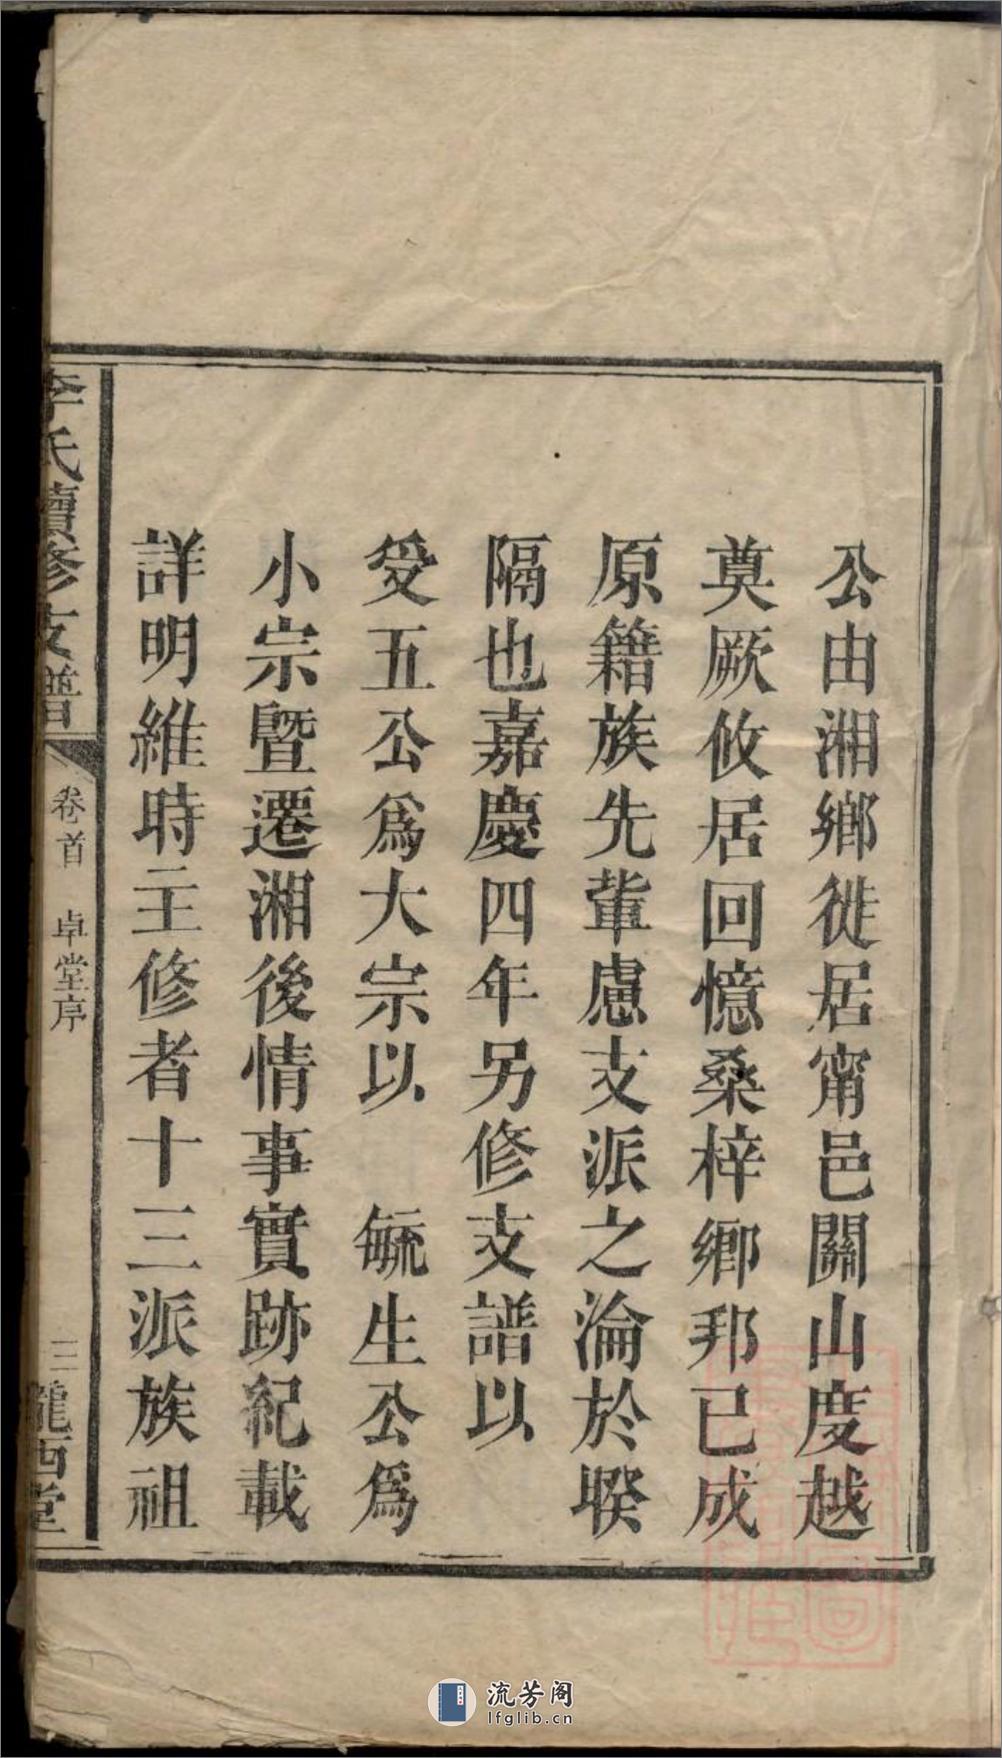 公由湘鄉徙居甯邑關山度越
奠厥攸居回憶桑梓鄉邦已成
原籍族先輩慮支派之淪於暌
隔也嘉慶四年另修支譜以
受五公爲大宗以　毓生公爲
小宗暨遷湘後情事實跡紀載
詳明維時主修者十三派族祖
李氏續修支譜
卷首　卓堂序
三
隴西堂
流芳阁
lfglib.cn